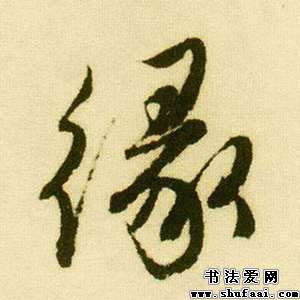 缘
书法爱网
www.shufaai.com